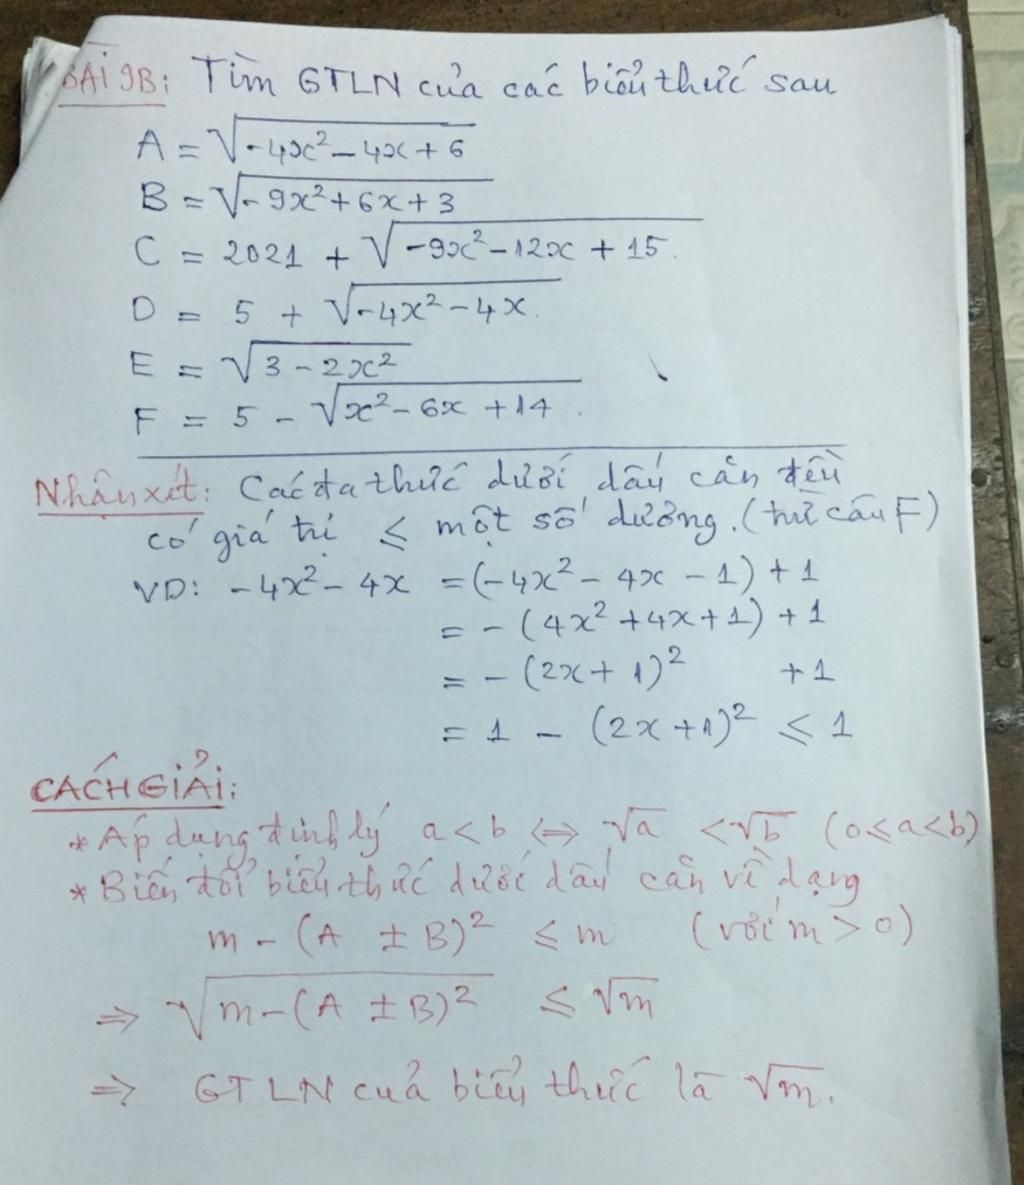 BÀI 9B: Tìm GTLN của các biểu thức sau
A = √(-4x² - 4x + 6)
B = √(-9x² + 6x + 3)
C = 2021 + √(-9x² - 12x + 15).
D = 5 + √(-4x² - 4x).
E = √(3 - 2x²)
F = 5 - √(x² - 6x + 14).
Nhận xét: Các đa thức dưới dấu căn đều
có giá trị ≤ một số dương. (trừ câu F)
VD: -4x² - 4x = (-4x² - 4x - 1) + 1
= - (4x² + 4x + 1) + 1
= - (2x + 1)² + 1
= 1 - (2x + 1)² ≤ 1
CÁCH GIẢI:
* Áp dụng định lý a < b ⇔ √a < √b (0 ≤ a < b)
* Biến đổi biểu thức dưới dấu căn về dạng
m - (A ± B)² ≤ m (với m > 0)
⇒ √(m - (A ± B)²) ≤ √m
⇒ GTLN của biểu thức là √m.